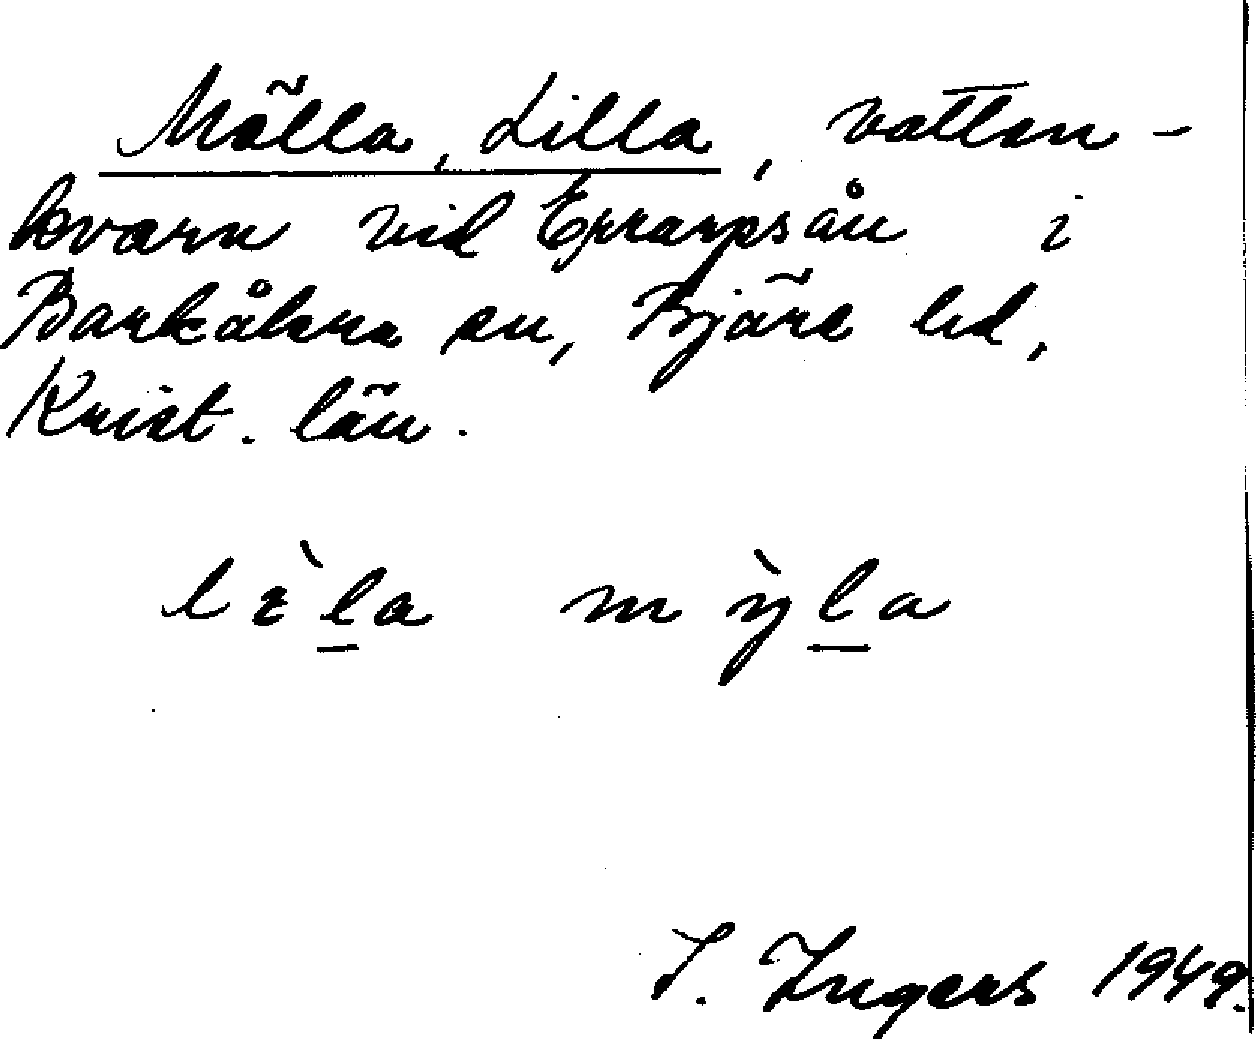 Mölla, Lilla, vatten-
kvarn vid Errarpsån i
Barkåkra sn, Bjäre hd,
Krist. län.
lɪ̀la mỳla
I. Ingers 1949.